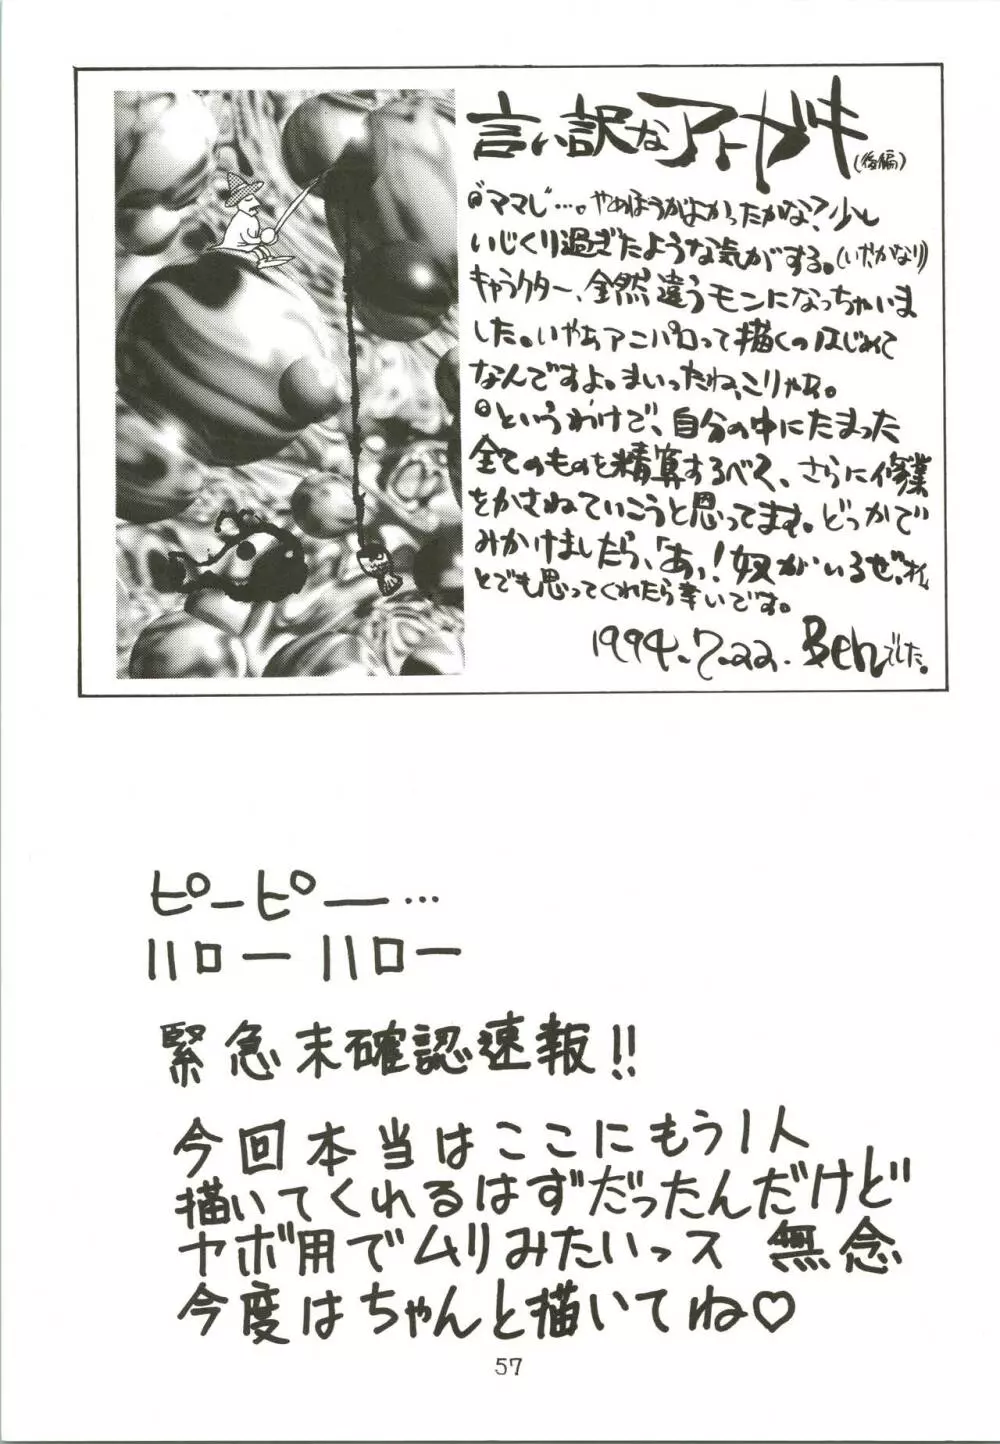 言い訳なアトガキ(後編)
◎"ママじ"…。やめほうがよかったかな?少し
いじくり過ぎたような気がする。(いやかなり)
キャラクター、全然違うモンになっちゃいま
した。いやぁアニパロって描くのはじめて
なんですよ。まいったね、こりゃあ。
◎というわけで、自分の中にたまった
全てのものを精算するべく、さらに修業
をかさねていこうと思ってます。どっかで
みかけましたら、「あっ!奴がいるぜ。
とでも思ってくれたら幸いです。
1994.7.22. Benでした。
ピーピー…
ハローハロー
緊急未確認速報!!
今回本当はここにもう1人
描いてくれるはずだったんだけど
ヤボ用でムリみたいっス 無念
今度はちゃんと描いてね♡
57